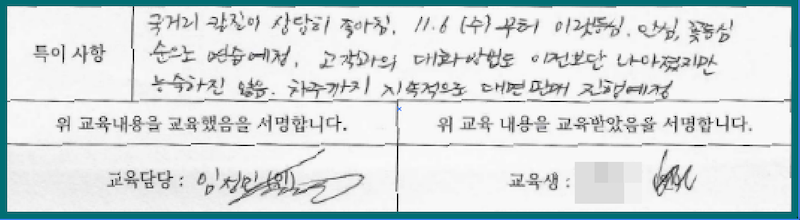 특이 사항
국거리 칼질이 상당히 좋아짐. 11.6 (수) 부터 아랫등심, 안심, 꽃등심
순으로 연습예정. 고객과의 대화방법도 이전보단 나아졌지만
능숙하진 않음. 차주까지 지속적으로 대면판매 진행예정
위 교육내용을 교육했음을 서명합니다.
위 교육 내용을 교육받았음을 서명합니다.
교육담당 : 임정민 (인)
교육생 :